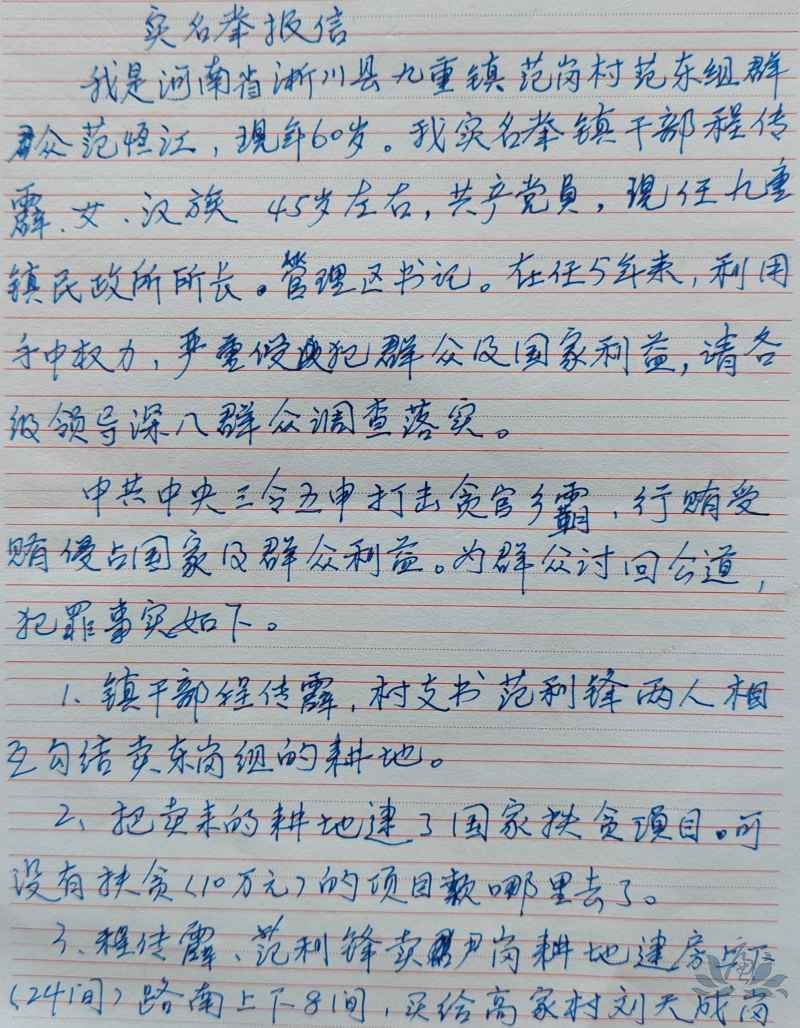 实名举报信
我是河南省淅川县九重镇范岗村范东组群
众范恒江，现年60岁。我实名举镇干部程传
霹、女、汉族 45岁左右，共产党员，现任九重
镇民政所所长。管理区书记。在任5年来，利用
手中权力，严重侵犯群众及国家利益，请各
级领导深八群众调查落实。
中共中央三令五申打击贪官乡霸，行贿受
贿侵占国家及群众利益。为群众讨回公道，
犯罪事实如下。
1、镇干部程传霹，村支书范利锋两人相
互勾结卖东岗组的耕地。
2、把卖来的耕地建了国家扶贫项目。可
没有扶贫（10万元）的项目款哪里去了。
3、程传霹、范利锋卖尹岗耕地建房上下
（24间）路南上下8间，买给高家村刘天成岗